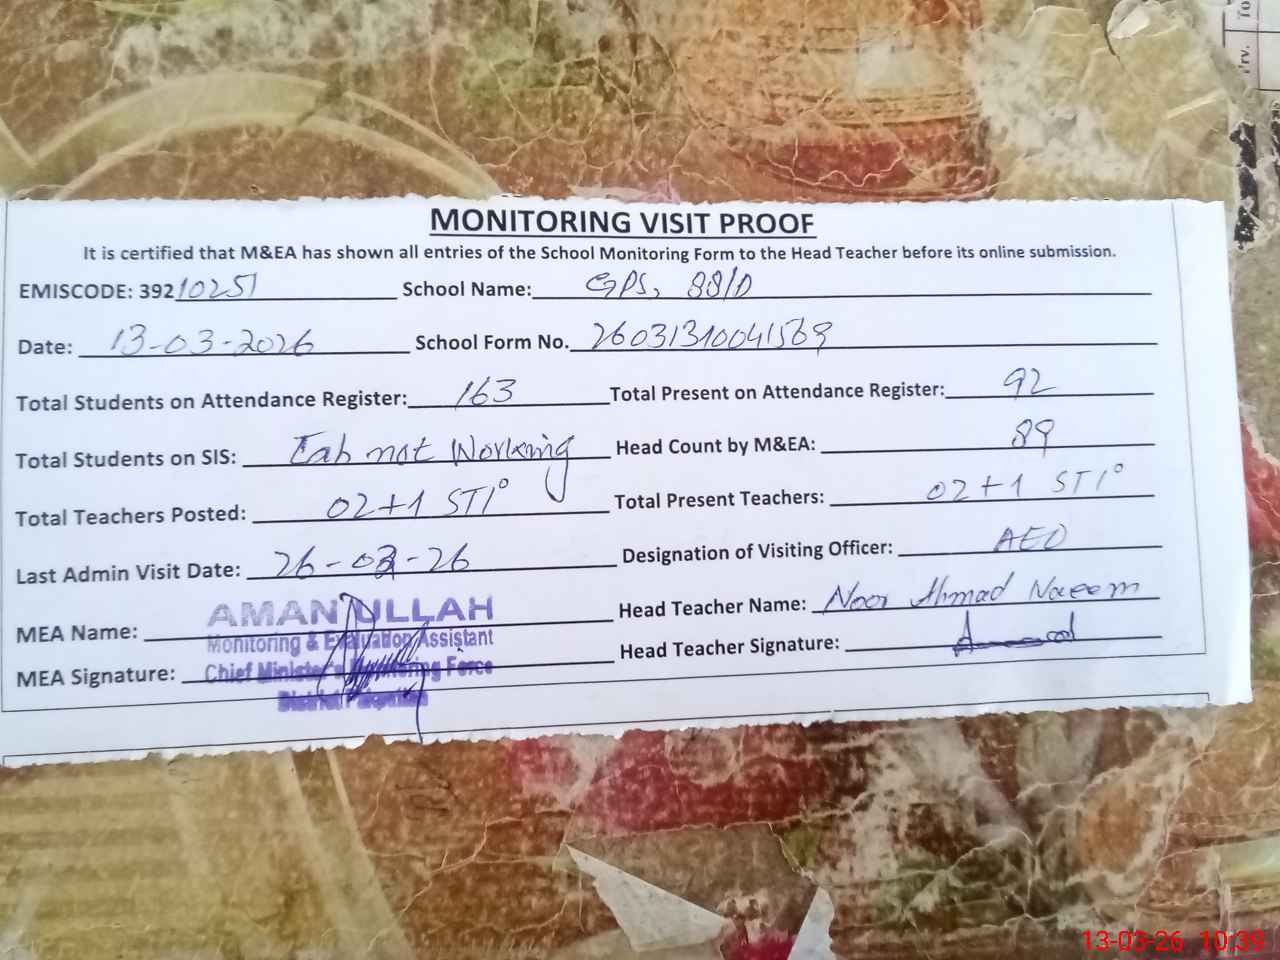 MONITORING VISIT PROOF
It is certified that M&EA has shown all entries of the School Monitoring Form to the Head Teacher before its online submission.
EMISCODE: 39210251 School Name: GPS, 88/D
Date: 13-03-2026 School Form No. 26031310041569
Total Students on Attendance Register: 163 Total Present on Attendance Register: 92
Total Students on SIS: Tab not Working Head Count by M&EA: 89
Total Teachers Posted: 02+1 STI Total Present Teachers: 02+1 STI
Last Admin Visit Date: 26-02-26 Designation of Visiting Officer: AEO
MEA Name: AMAN ULLAH Head Teacher Name: Noor Ahmad Naeem
Monitoring & Evaluation Assistant
MEA Signature: Chief Minister's Monitoring Force Head Teacher Signature:
District
Prv. To
13-03-26 10:39